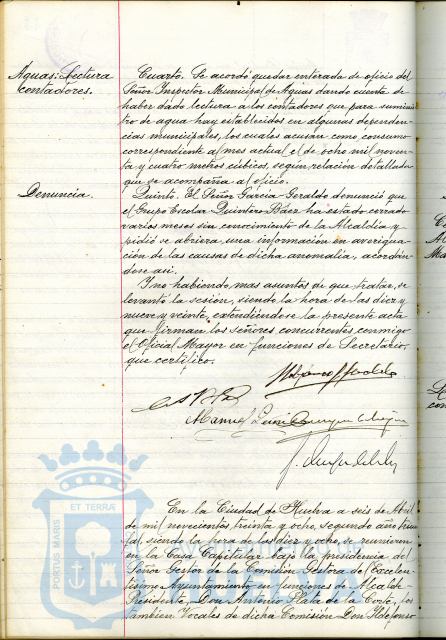 Aguas: Lectura
contadores.
Cuarto. Se acordó quedar enterada de oficio del
Señor Inspector Municipal de Aguas dando cuenta de
haber dado lectura a los contadores que para suminis
tro de agua hay establecidos en algunas dependen
cias municipales, los cuales acusan como consumo
correspondiente al mes actual el de ocho mil noven
ta y cuatro metros cúbicos, según relación detallada
que se acompaña al oficio.
Denuncia.
Quinto. El Señor García Geraldo denunció que
el Grupo Escolar Quintero Báez ha estado cerrado
varios meses sin conocimiento de la Alcaldía y
pidió se abriera una información en averigua
ción de las causas de dicha anomalía, acordán
dose así.
Y no habiendo mas asuntos de que tratar, se
levantó la sesión, siendo la hora de las diez y
nueve y veinte, extendiéndose la presente acta
que firman los señores concurrentes conmigo
el Oficial Mayor en funciones de Secretario,
que certifico.
Manuel
En la Ciudad de Huelva a seis de Abril
de mil novecientos treinta y ocho, segundo año triun
fal, siendo la hora de las diez y ocho, se reunieron
en la Casa Capitular bajo la presidencia del
Señor Gestor de la Comisión Gestora del Excelen
tísimo Ayuntamiento en funciones de Alcalde-
Presidente Don Antonio Plata de la Corte, los
también Vocales de dicha Comisión Don Ildefonso
PORTUS MARIS ET TERRAE